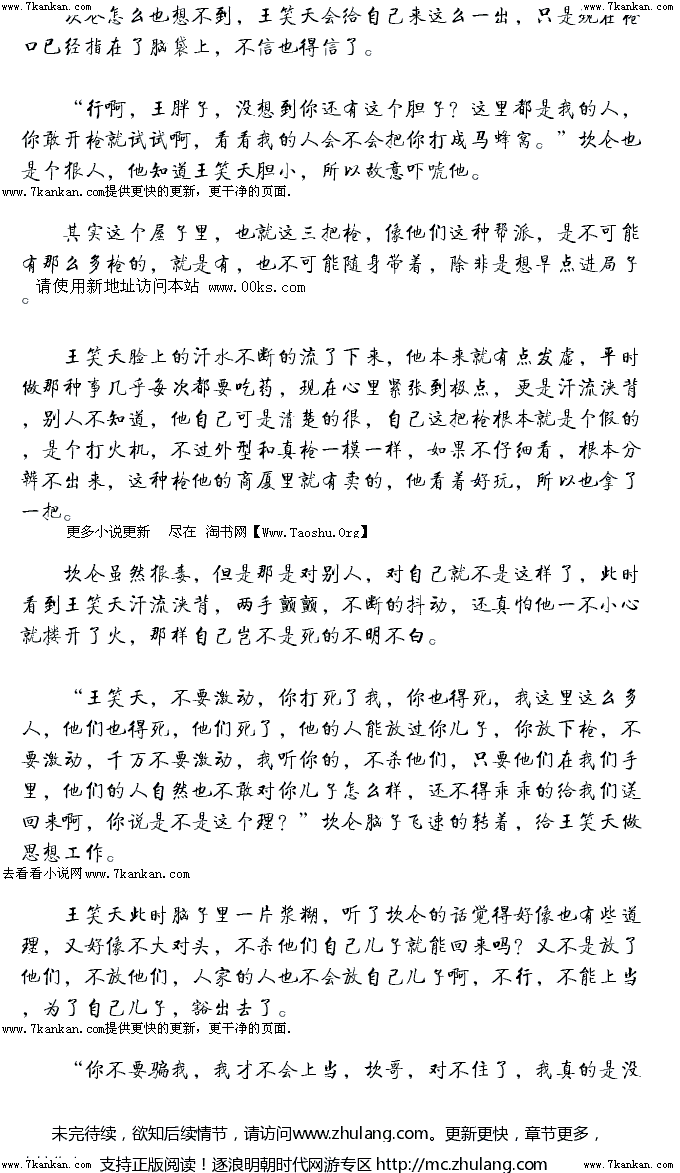 www.7kankan.com www.7kankan.com
坎仑怎么也想不到，王笑天会给自己来这么一出，只是现在枪
口已经指在了脑袋上，不信也得信了。
“行啊，王胖子，没想到你还有这个胆子？这里都是我的人，
你敢开枪就试试啊，看看我的人会不会把你打成马蜂窝。”坎仑也
是个狠人，他知道王笑天胆小，所以故意吓唬他。
www.7kankan.com提供更快的更新，更干净的页面.
其实这个屋子里，也就这三把枪，像他们这种帮派，是不可能
有那么多枪的，就是有，也不可能随身带着，除非是想早点进局子
。请使用新地址访问本站 www.00ks.com
王笑天脸上的汗水不断的流了下来，他本来就有点发虚，平时
做那种事几乎每次都要吃药，现在心里紧张到极点，更是汗流浃背
，别人不知道，他自己可是清楚的很，自己这把枪根本就是个假的
，是个打火机，不过外型和真枪一模一样，如果不仔细看，根本分
辨不出来，这种枪他的商厦里就有卖的，他看着好玩，所以也拿了
一把。
更多小说更新 尽在 淘书网【Www.Taoshu.Org】
坎仑虽然很毒，但是那是对别人，对自己就不是这样了，此时
看到王笑天汗流浃背，两手颤颤，不断的抖动，还真怕他一不小心
就搂开了火，那样自己岂不是死的不明不白。
“王笑天，不要激动，你打死了我，你也得死，我这里这么多
人，他们也得死，他们死了，他的人能放过你儿子，你放下枪，不
要激动，千万不要激动，我听你的，不杀他们，只要他们在我们手
里，他们的人自然也不敢对你儿子怎么样，还不得乖乖的给我们送
回来啊，你说是不是这个理？”坎仑脑子飞速的转着，给王笑天做
思想工作。
去看看小说网www.7kankan.com
王笑天此时脑子里一片浆糊，听了坎仑的话觉得好像也有些道
理，又好像不大对头，不杀他们自己儿子就能回来吗？又不是放了
他们，不放他们，人家的人也不会放自己儿子啊，不行，不能上当
，为了自己儿子，豁出去了。
www.7kankan.com提供更快的更新，更干净的页面.
“你不要骗我，我才不会上当，坎哥，对不住了，我真的是没
未完待续，欲知后续情节，请访问www.zhulang.com。更新更快，章节更多，
www.7kankan.com 支持正版阅读！逐浪明朝时代网游专区 http://mc.zhulang.com www.7kankan.com